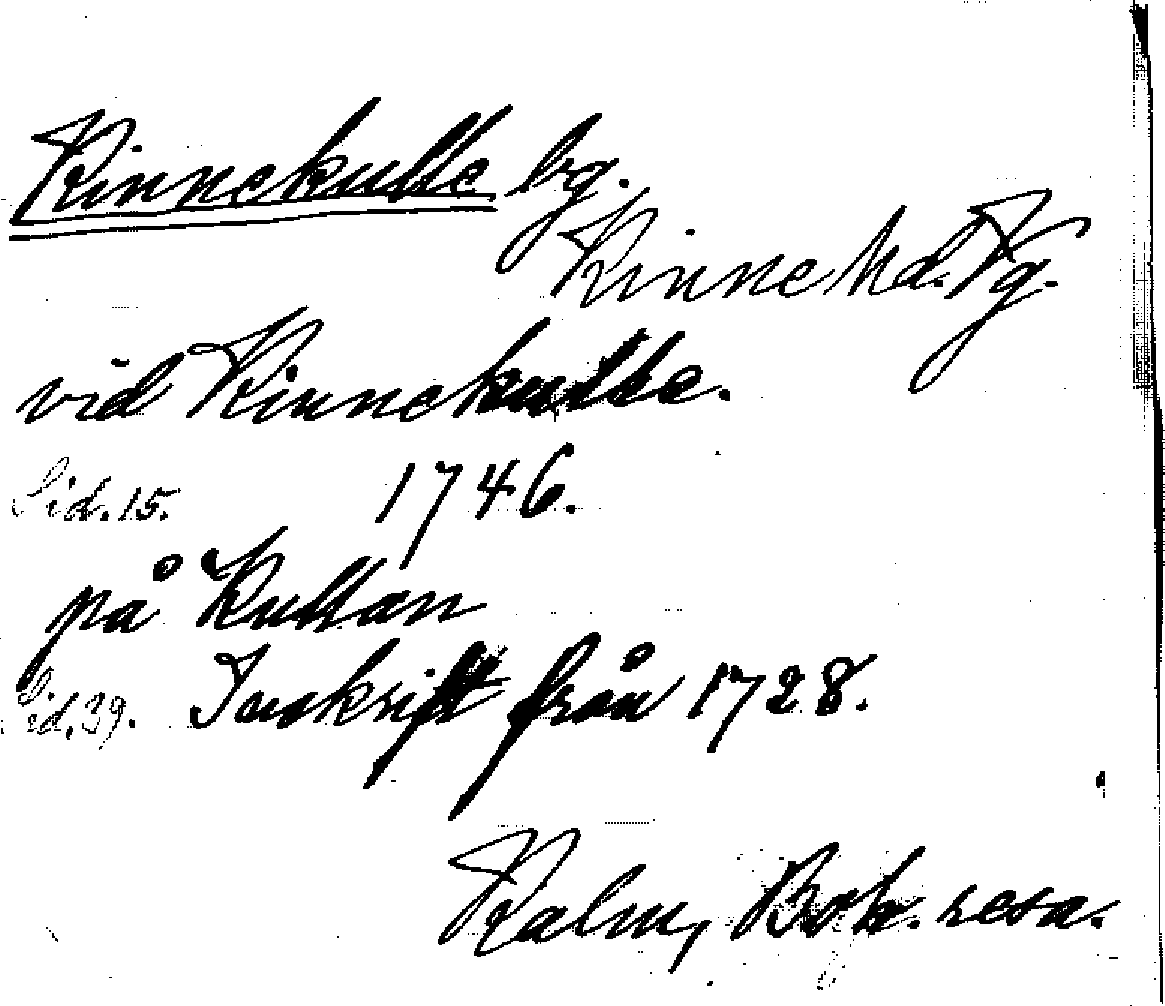 Kinnekulle bg.
Kinne hd. Vg.
vid Kinnekulle.
Sid. 15. 1746.
på Kullan
Sid. 39. Inskrift från 1728.
Kalm, Boh. resa.